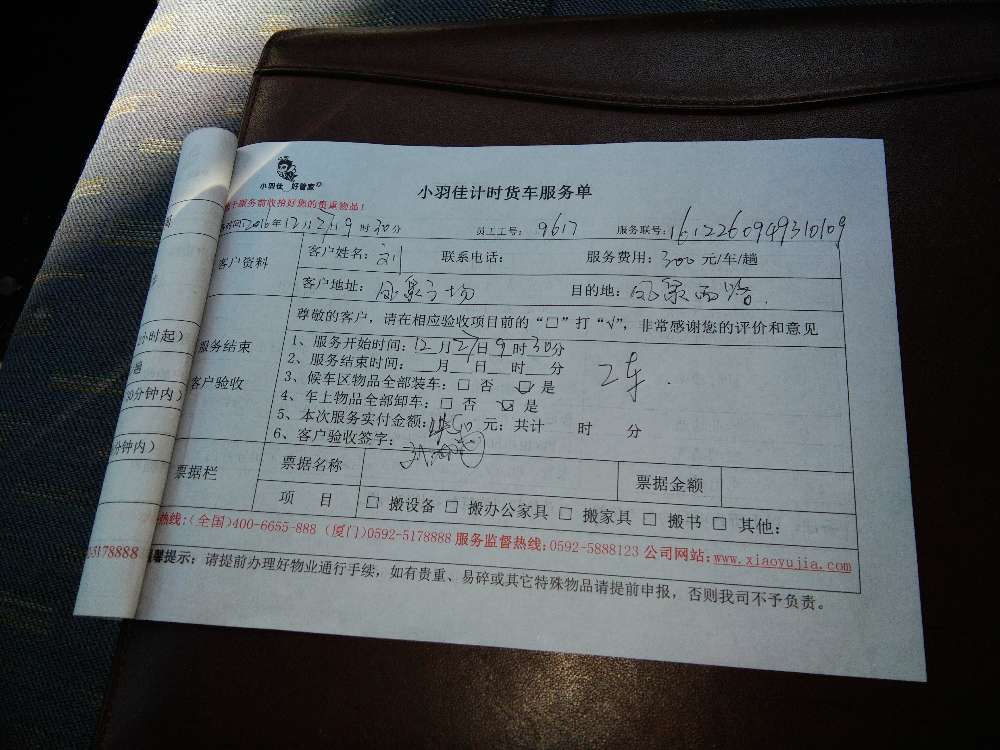 小羽佳 好管家
小羽佳计时货车服务单
服务前收拾好您的贵重物品！
2016年12月27日9时30分 员工工号：9617 服务联号：1612260949310109
客户资料
客户姓名：刘 联系电话： 服务费用：300元/车/趟
客户地址：凤聚广场 目的地：凤聚西路
服务结束
客户验收
尊敬的客户，请在相应验收项目前的“□”打“√”，非常感谢您的评价和意见
1、服务开始时间：12月27日9时30分
2、服务结束时间：__月__日__时__分
2车.
3、候车区物品全部装车：□ 否 ☑ 是
4、车上物品全部卸车：□ 否 ☑ 是
5、本次服务实付金额：元；共计 时 分
6、客户验收签字：
票据栏
票据名称 票据金额
项 目 □ 搬设备 □ 搬办公家具 □ 搬家具 □ 搬书 □ 其他：
热线：（全国）400-6655-888（厦门）0592-5178888 服务监督热线：0592-5888123 公司网站：www.xiaoyujia.com
提示：请提前办理好物业通行手续，如有贵重、易碎或其它特殊物品请提前申报，否则我司不予负责。
小时起）
30分钟内）
分钟内）
5178888